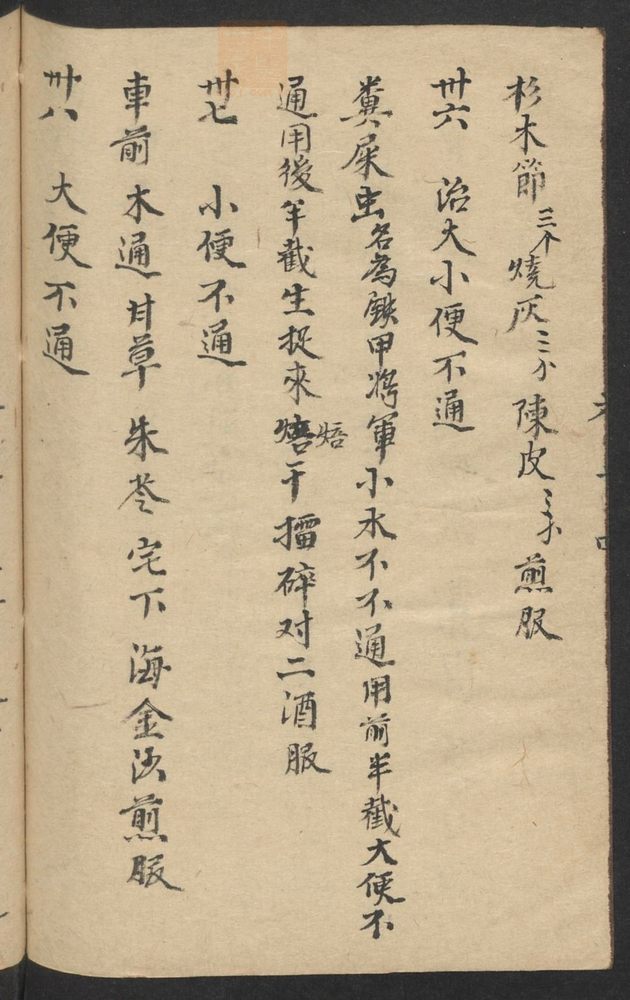 杉木節三个燒灰三个陳皮三个煎服
卅六 治大小便不通
糞屎虫名為鐵甲将軍小水不不通用前半截大便不
通用後半截生捉來焙干擂碎对二酒服
焙
卅七 小便不通
車前 木通 甘草 朱苓 宅下 海金沙煎服
卅八 大便不通